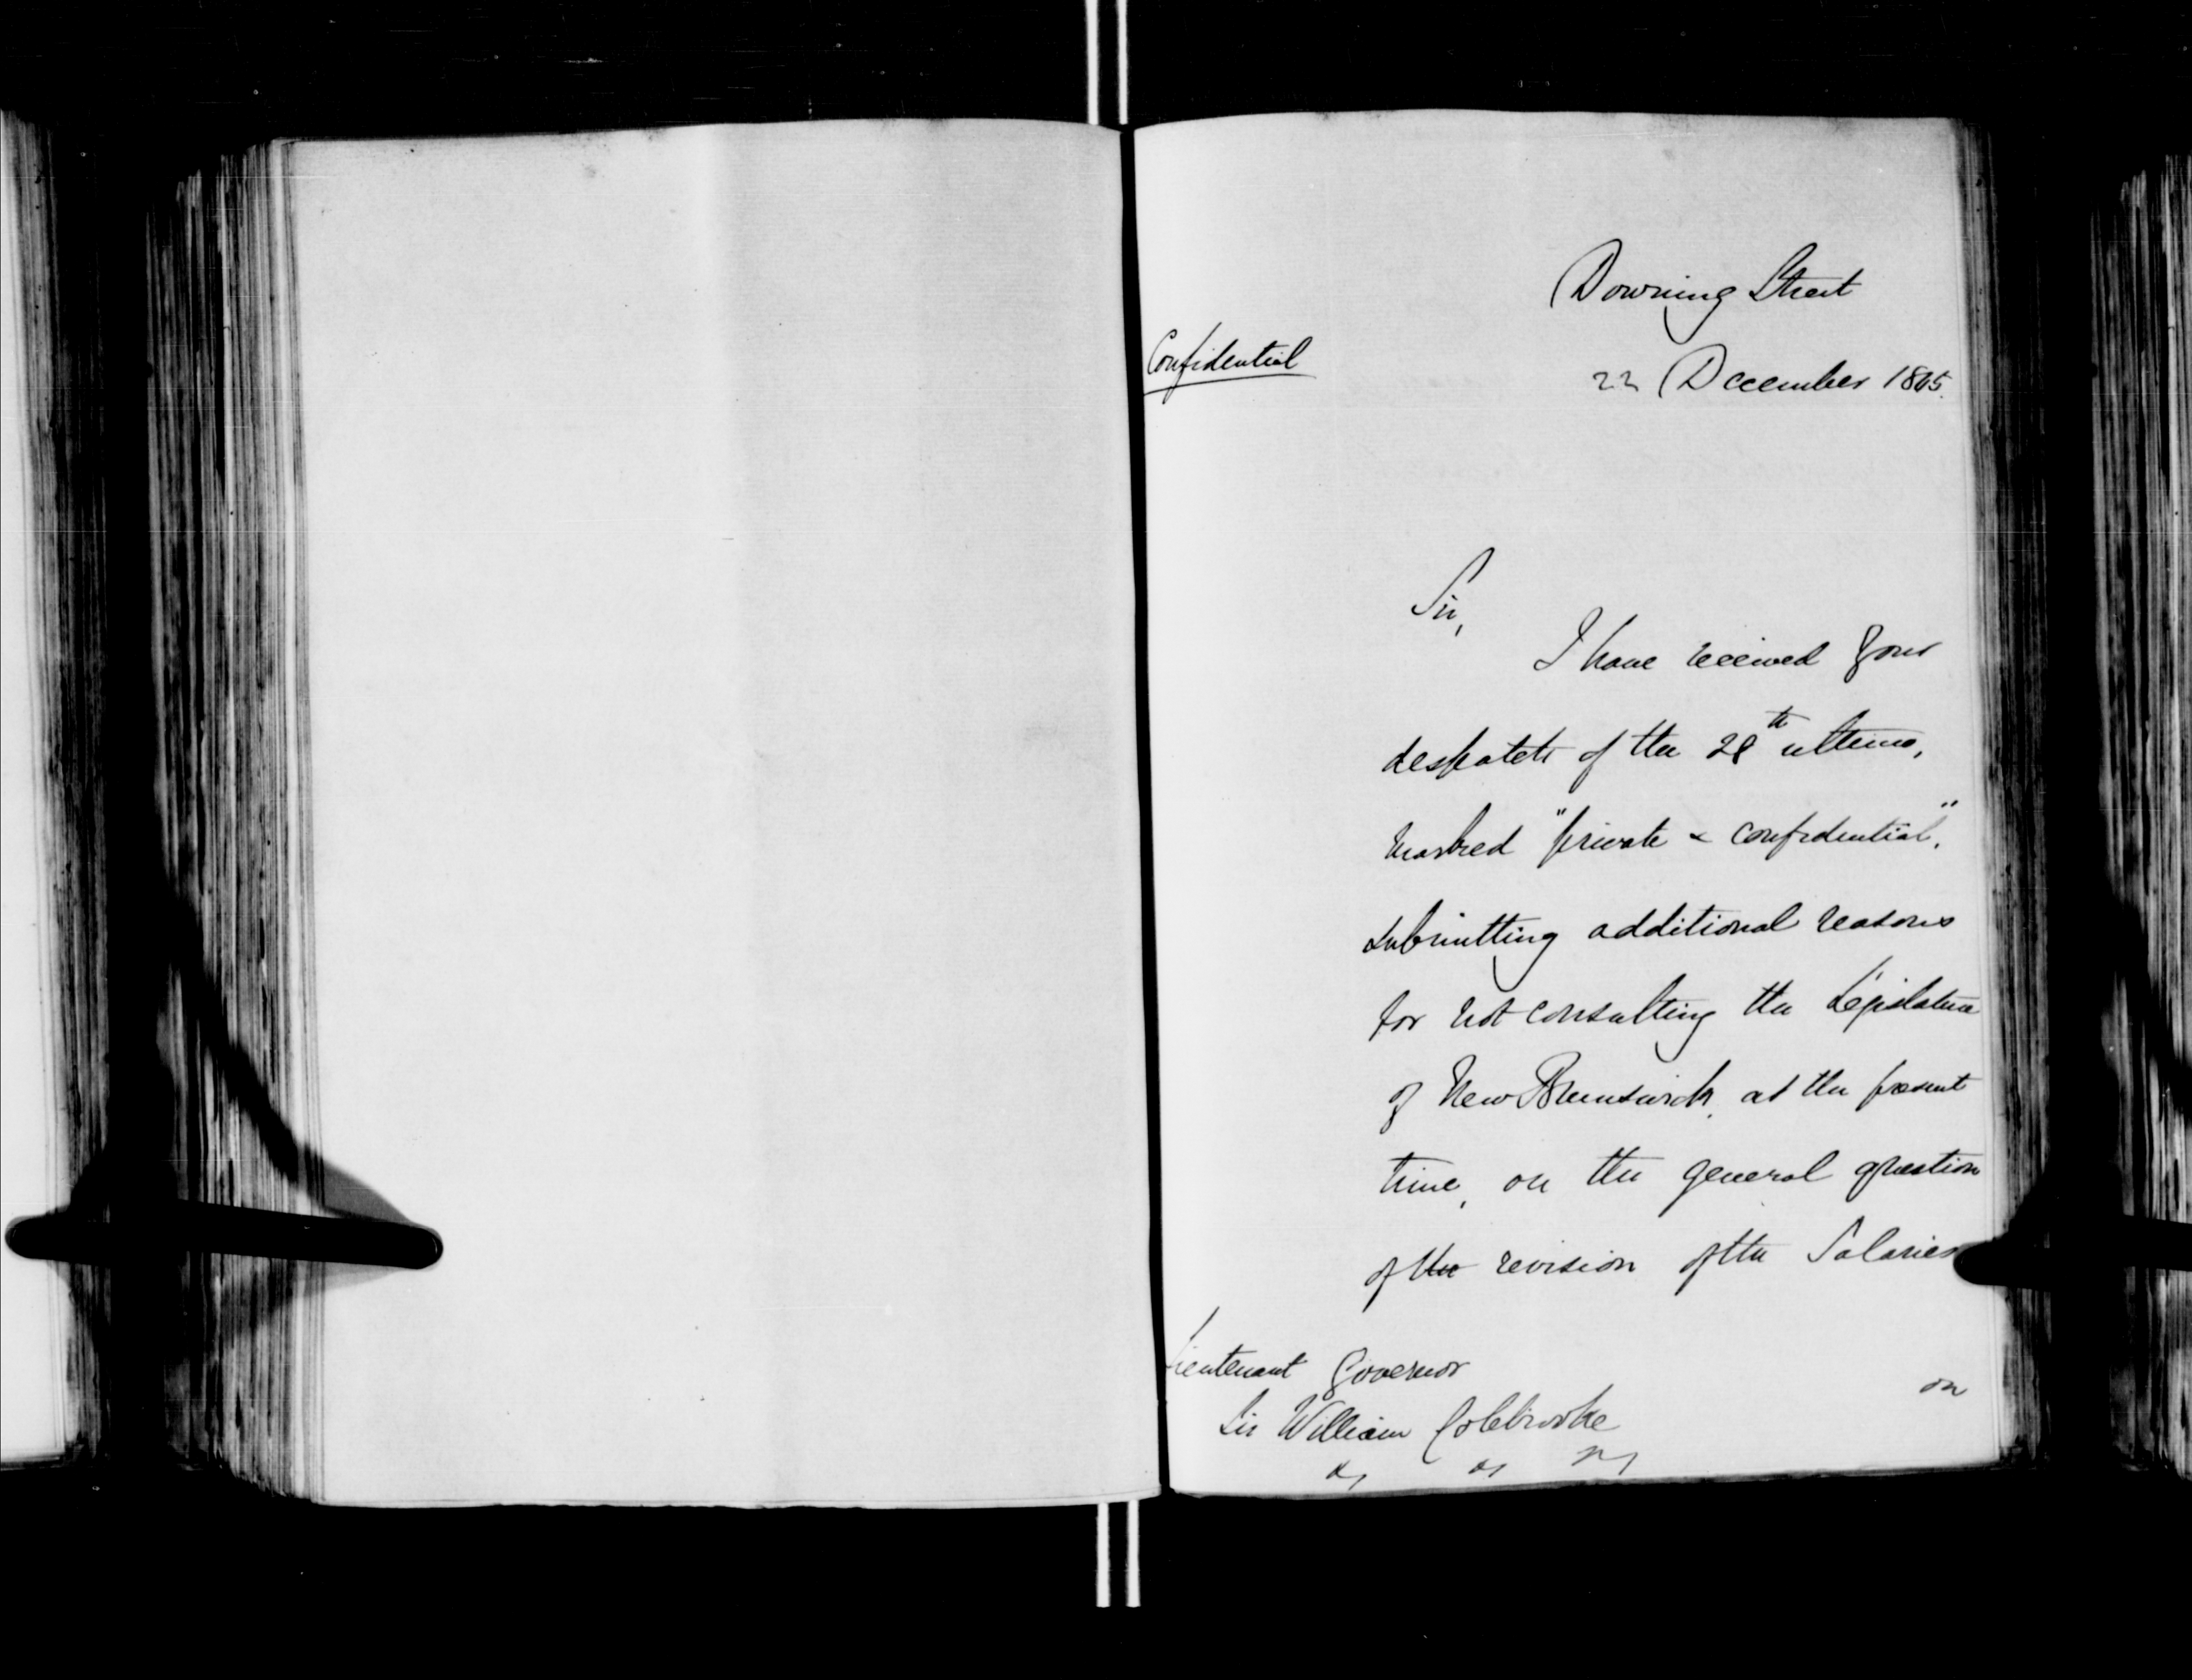 Downing Street
Confidential
22 December 1845.
Sir,
I have received your
despatch of the 28th ultimo,
marked "private & confidential",
submitting additional reasons
for not consulting the Legislature
of New Brunswick, at the present
time, on the general question
of the revision of the Salaries
Lieutenant Governor
on
Sir William Colebrooke